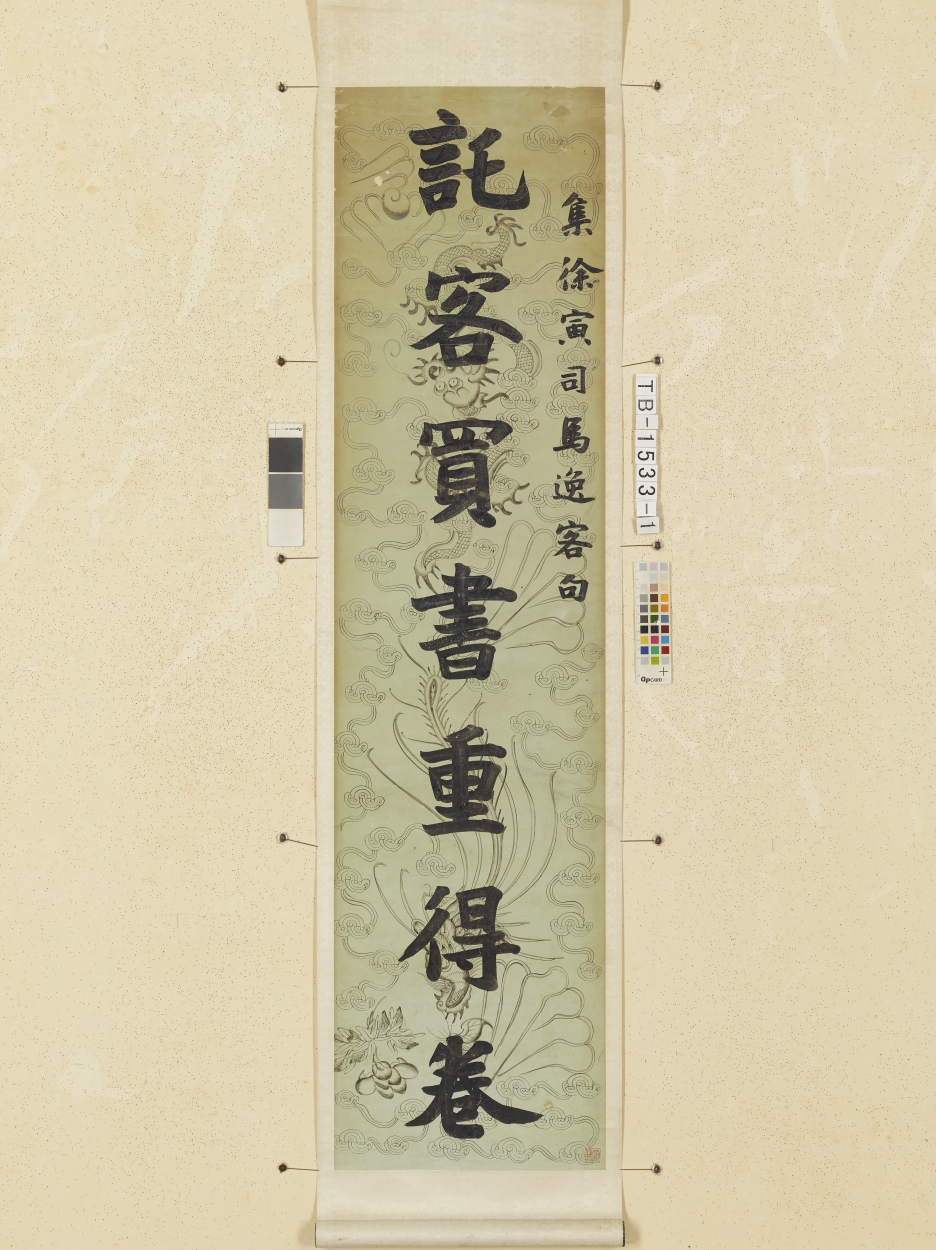 集徐寅司馬逸客句
託客買書重得卷
TB-1533-1
OpCARD